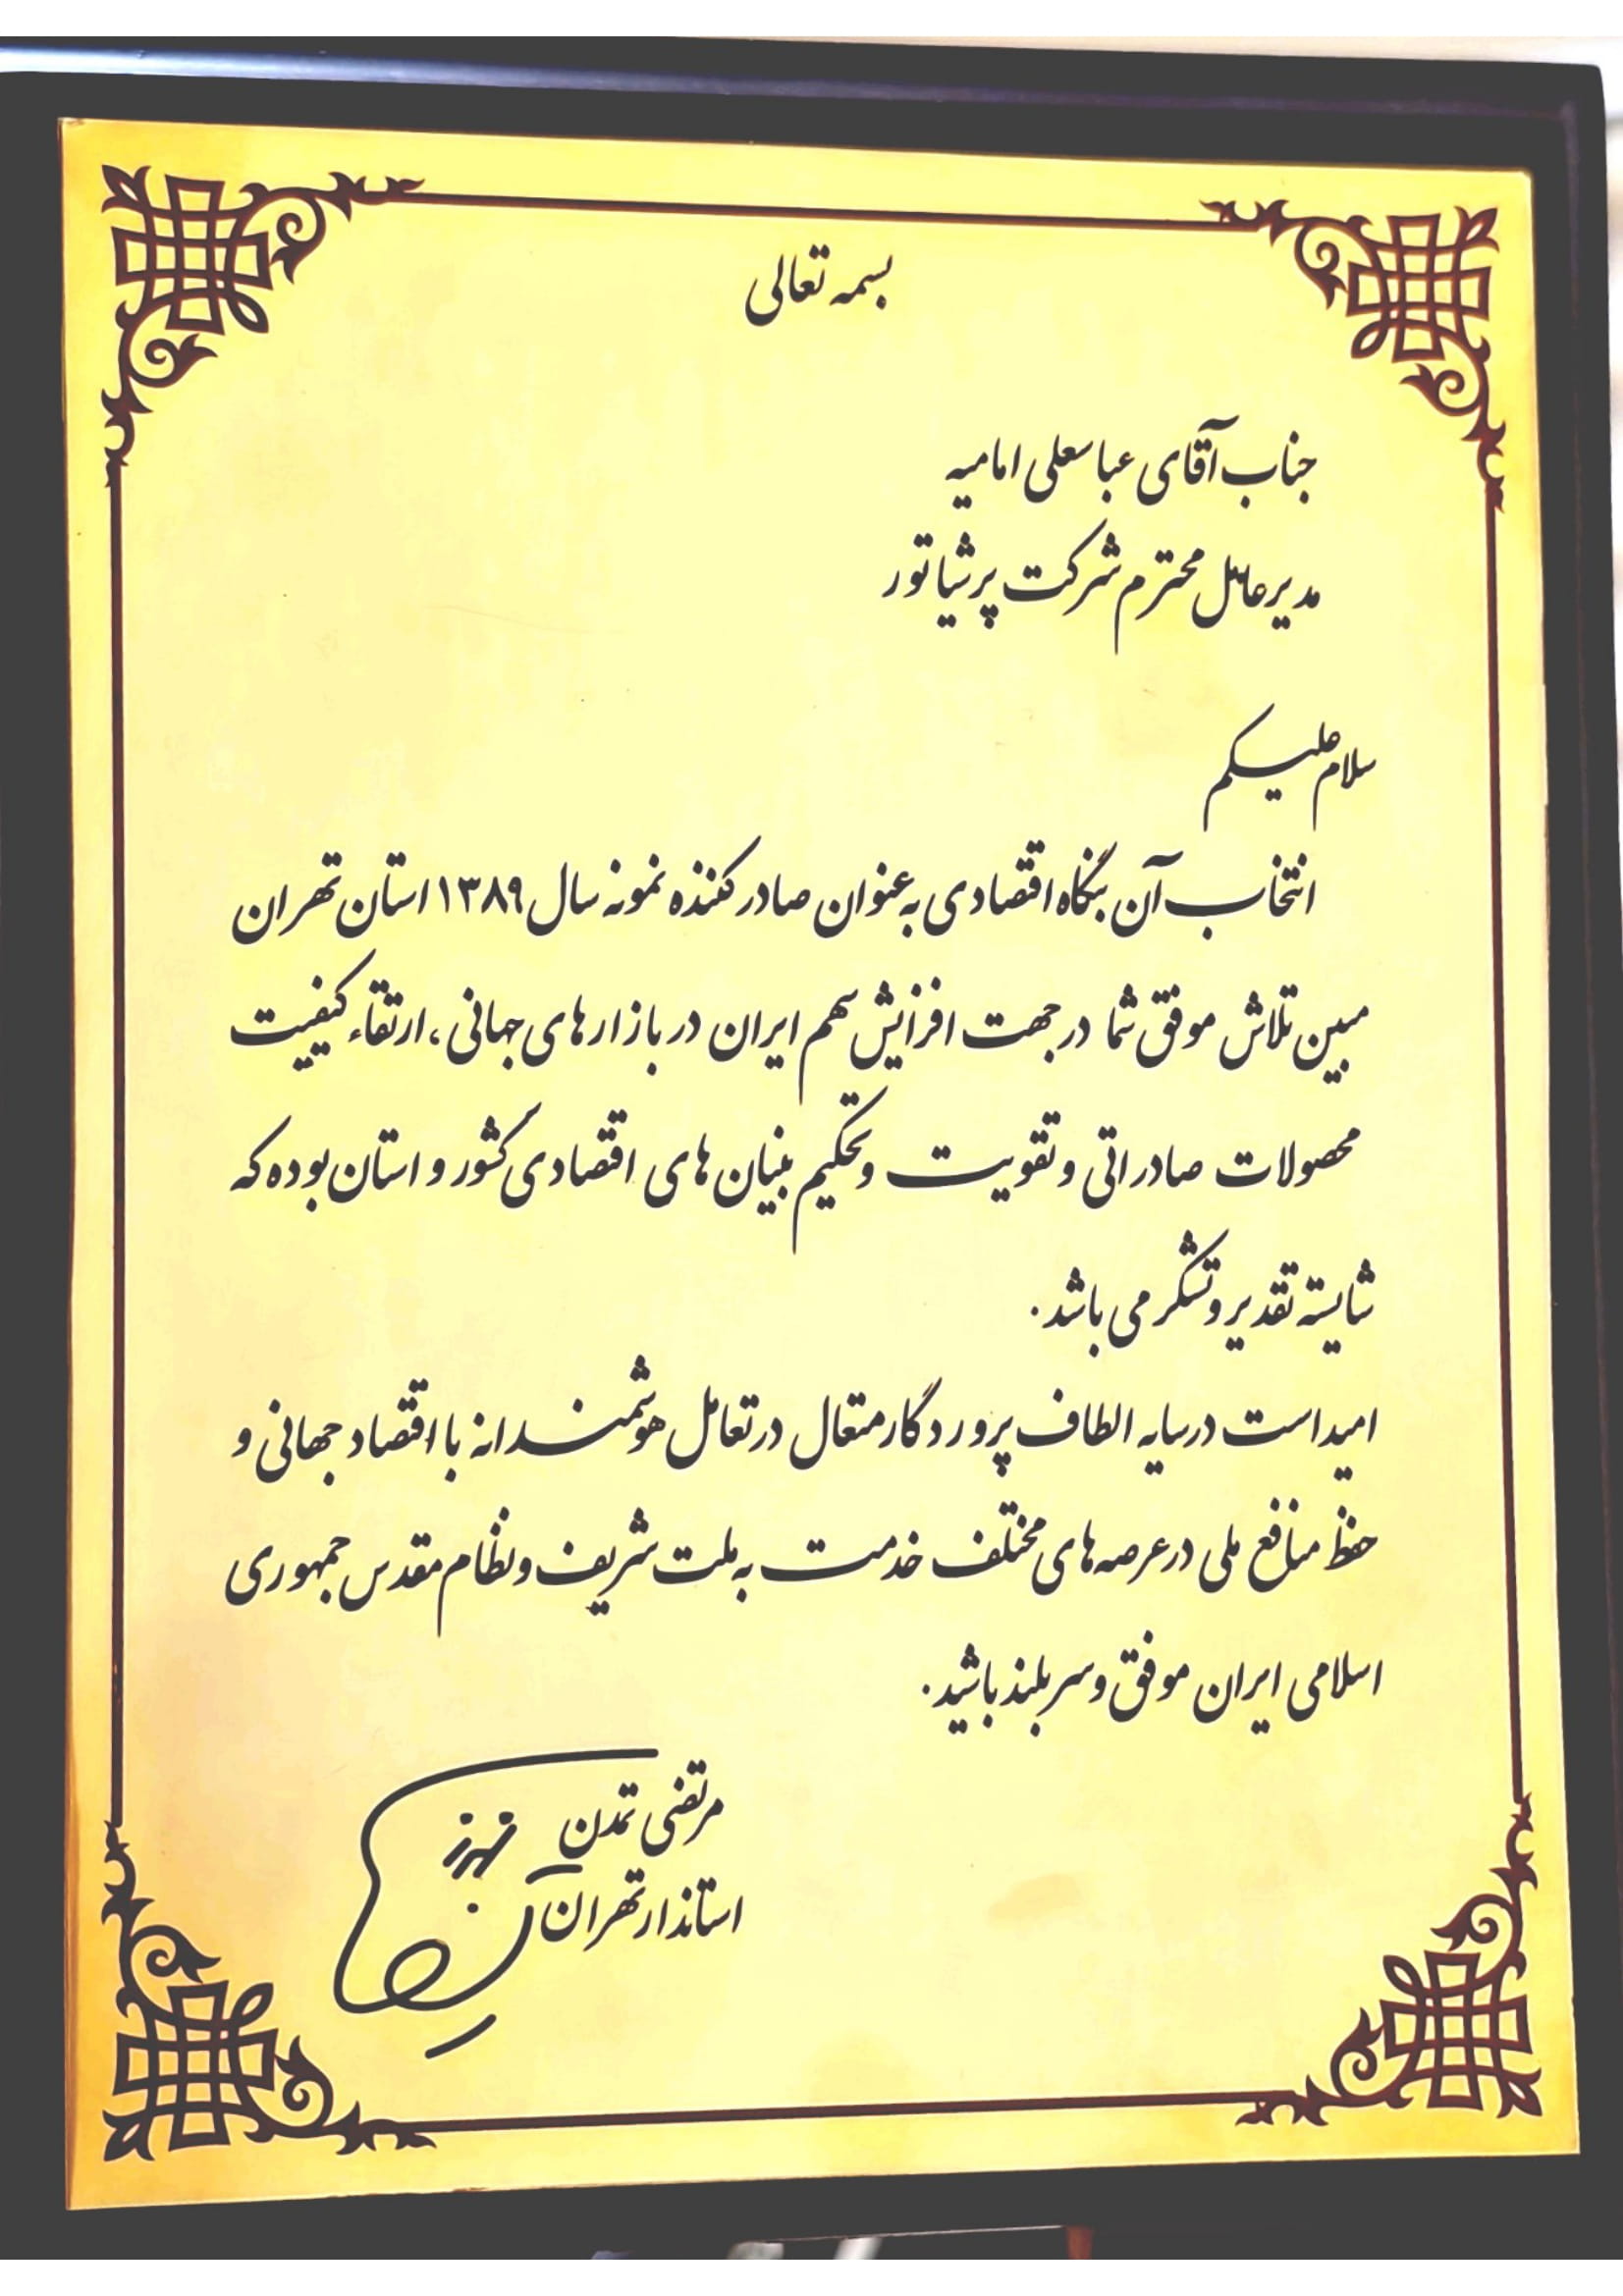 بسمه تعالی
جناب آقای عباسعلی امامیه
مدیرعامل محترم شرکت پرشیا تور
سلام علیکم
انتخاب آن بنگاه اقتصادی به عنوان صادر کننده نمونه سال ۱۳۸۹ استان تهران
مبین تلاش موفق شما در جهت افزایش سهم ایران در بازارهای جهانی ، ارتقاء کیفیت
محصولات صادراتی و تقویت و تحکیم بنیان های اقتصادی کشور و استان بوده که
شایسته تقدیر و تشکر می باشد .
امید است در سایه الطاف پروردگار متعال در تعامل هوشمندانه با اقتصاد جهانی و
حفظ منافع ملی در عرصه های مختلف خدمت به ملت شریف و نظام مقدس جمهوری
اسلامی ایران موفق و سربلند باشید .
مرتضی تمدن
استاندار تهران